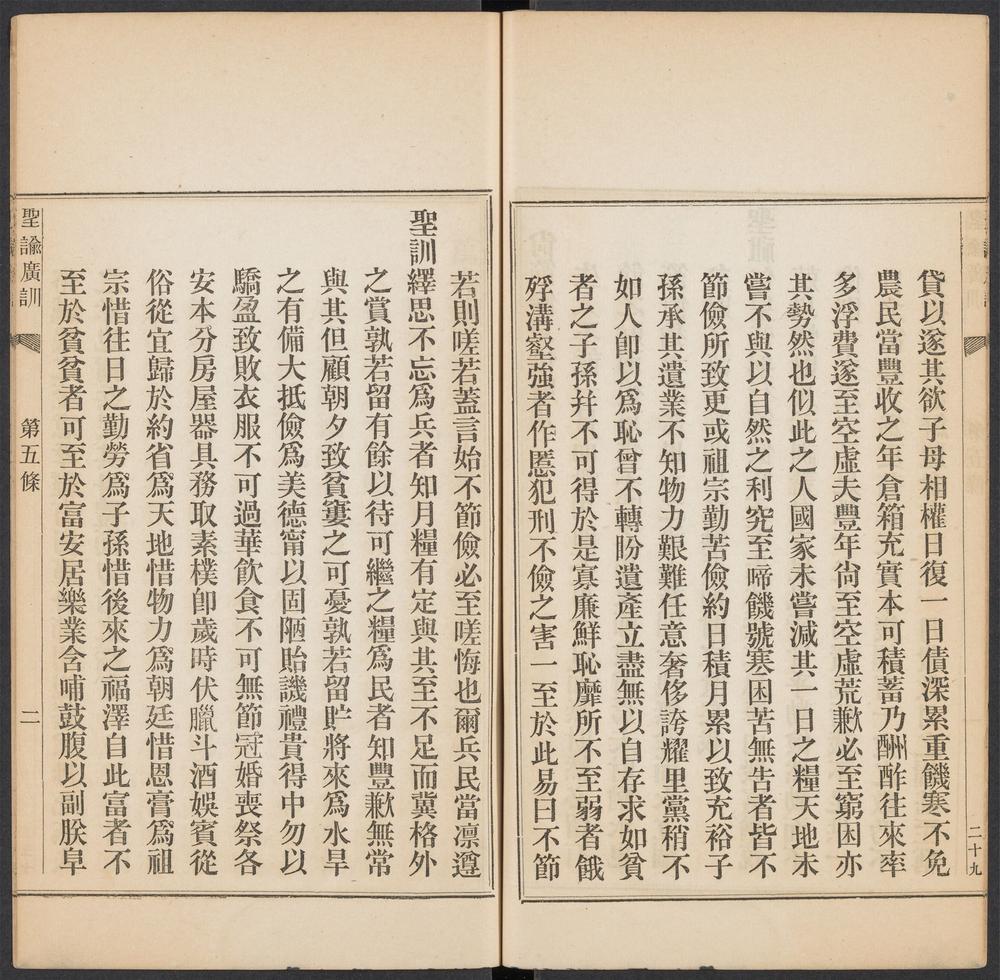 貸以遂其欲子母相權日復一日債深累重饑寒不免
農民當豐收之年倉箱充實本可積蓄乃酬酢往來率
多浮費遂至空虛夫豐年尚至空虛荒歉必至窮困亦
其勢然也似此之人國家未嘗減其一日之糧天地未
嘗不與以自然之利究至啼饑號寒困苦無告者皆不
節儉所致更或祖宗勤苦儉約日積月累以致充裕子
孫承其遺業不知物力艱難任意奢侈誇耀里黨稍不
如人卽以爲恥曾不轉盼遺產立盡無以自存求如貧
者之子孫幷不可得於是寡廉鮮恥靡所不至弱者餓
殍溝壑強者作慝犯刑不儉之害一至於此易曰不節
二十九
若則嗟若蓋言始不節儉必至嗟悔也爾兵民當凛遵
聖訓繹思不忘爲兵者知月糧有定與其至不足而冀格外
之賞孰若留有餘以待可繼之糧爲民者知豐歉無常
與其但顧朝夕致貧窶之可憂孰若留貯將來爲水旱
之有備大抵儉爲美德甯以固陋貽譏禮貴得中勿以
驕盈致敗衣服不可過華飮食不可無節冠婚喪祭各
安本分房屋器具務取素樸卽歲時伏臘斗酒娛賓從
俗從宜歸於約省爲天地惜物力爲朝廷惜恩膏爲祖
宗惜往日之勤勞爲子孫惜後來之福澤自此富者不
至於貧貧者可至於富安居樂業含哺鼓腹以副朕阜
聖諭廣訓 第五條 二